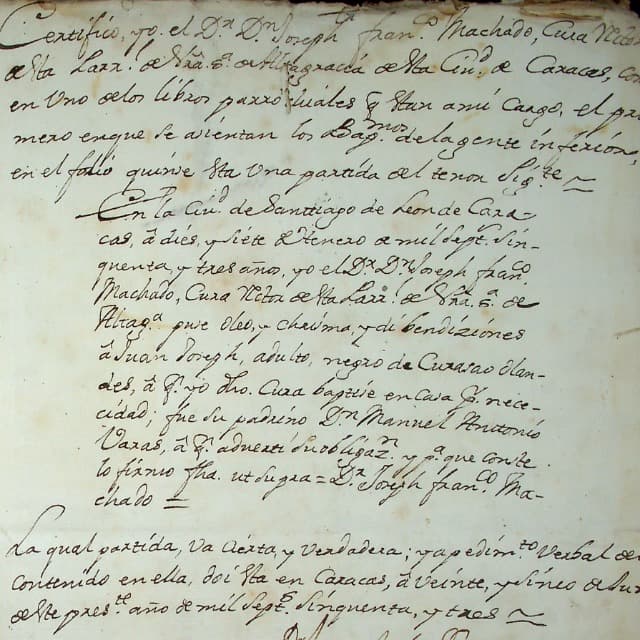 Certifico, yo. el D.r D.n Joseph fran.co Machado, Cura Rector
de sta Parr.l de Nra. S.a de Altagracia de sta Ciu.d de Caracas, con
en Uno de los libros parroquiales q stan ami Cargo, el pri
mero en que se asientan los Bap.mos de la gente inferion,
en el folio quinse sta Una partida del tenor Sig.te
En la Ciu.d de Santiago de Leon de Cara-
cas, â dies, y siete de Henero de mil Sept.s Sin-
quenta, y tres años, yo el D.r D.n Joseph fran.co
Machado, Cura Rctor de sta Parr.l de Nra. S.a de
Altag.a puse Oleo, y chrisma, y di bendiziones
â Juan Joseph, adulto, negro de Curasao Olan-
des, â q.n yo dho. Cura baptise en casa p.r nece-
cidad; fue su padrino D.n Manuel Antonio
Varas, â q.n adverti su obligaz.n y p.a que conste
lo firmo fha. ut supra = D.r Joseph fran.co Ma-
chado =
La qual partida, Va cierta, y Verdadera; y a pedim.to Verbal de
contenido en ella, doi sta en Caracas, â Veinte, y sinco de Jun
de ste pres.te año de mil Sept.s Sinquenta, y tres